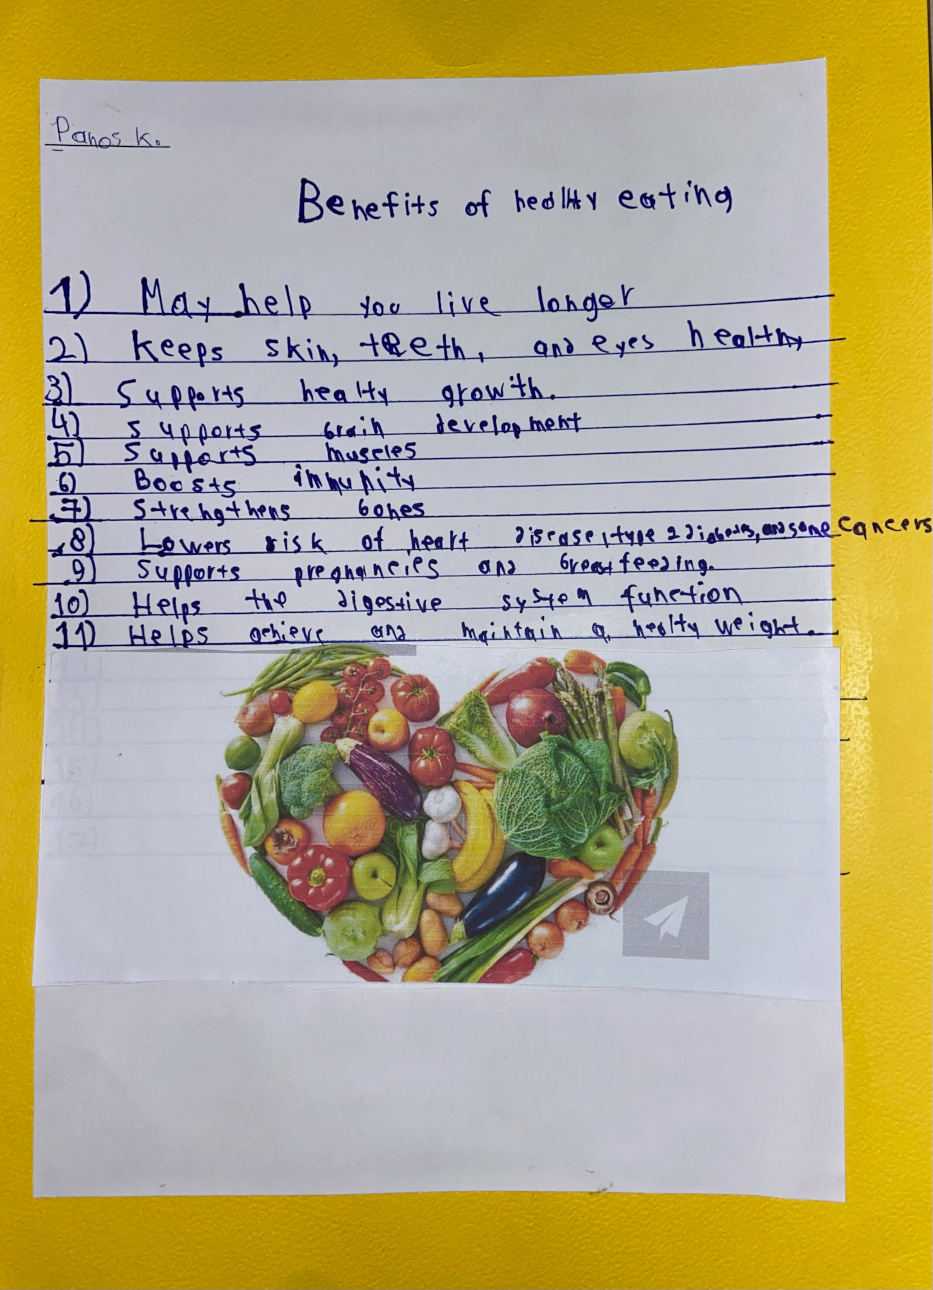 Panos K.
Benefits of healthy eating
1) May help you live longer
2) Keeps skin, teeth, and eyes healthy
3) Supports healty growth.
4) Supports brain development
5) Supports muscles
6) Boosts immunity
7) Strengthens bones
8) Lowers risk of heart disease, type 2 diabetes, and some cancers
9) Supports pregnancies and breastfeeding.
10) Helps the digestive system function
11) Helps achieve and maintain a healty weight.